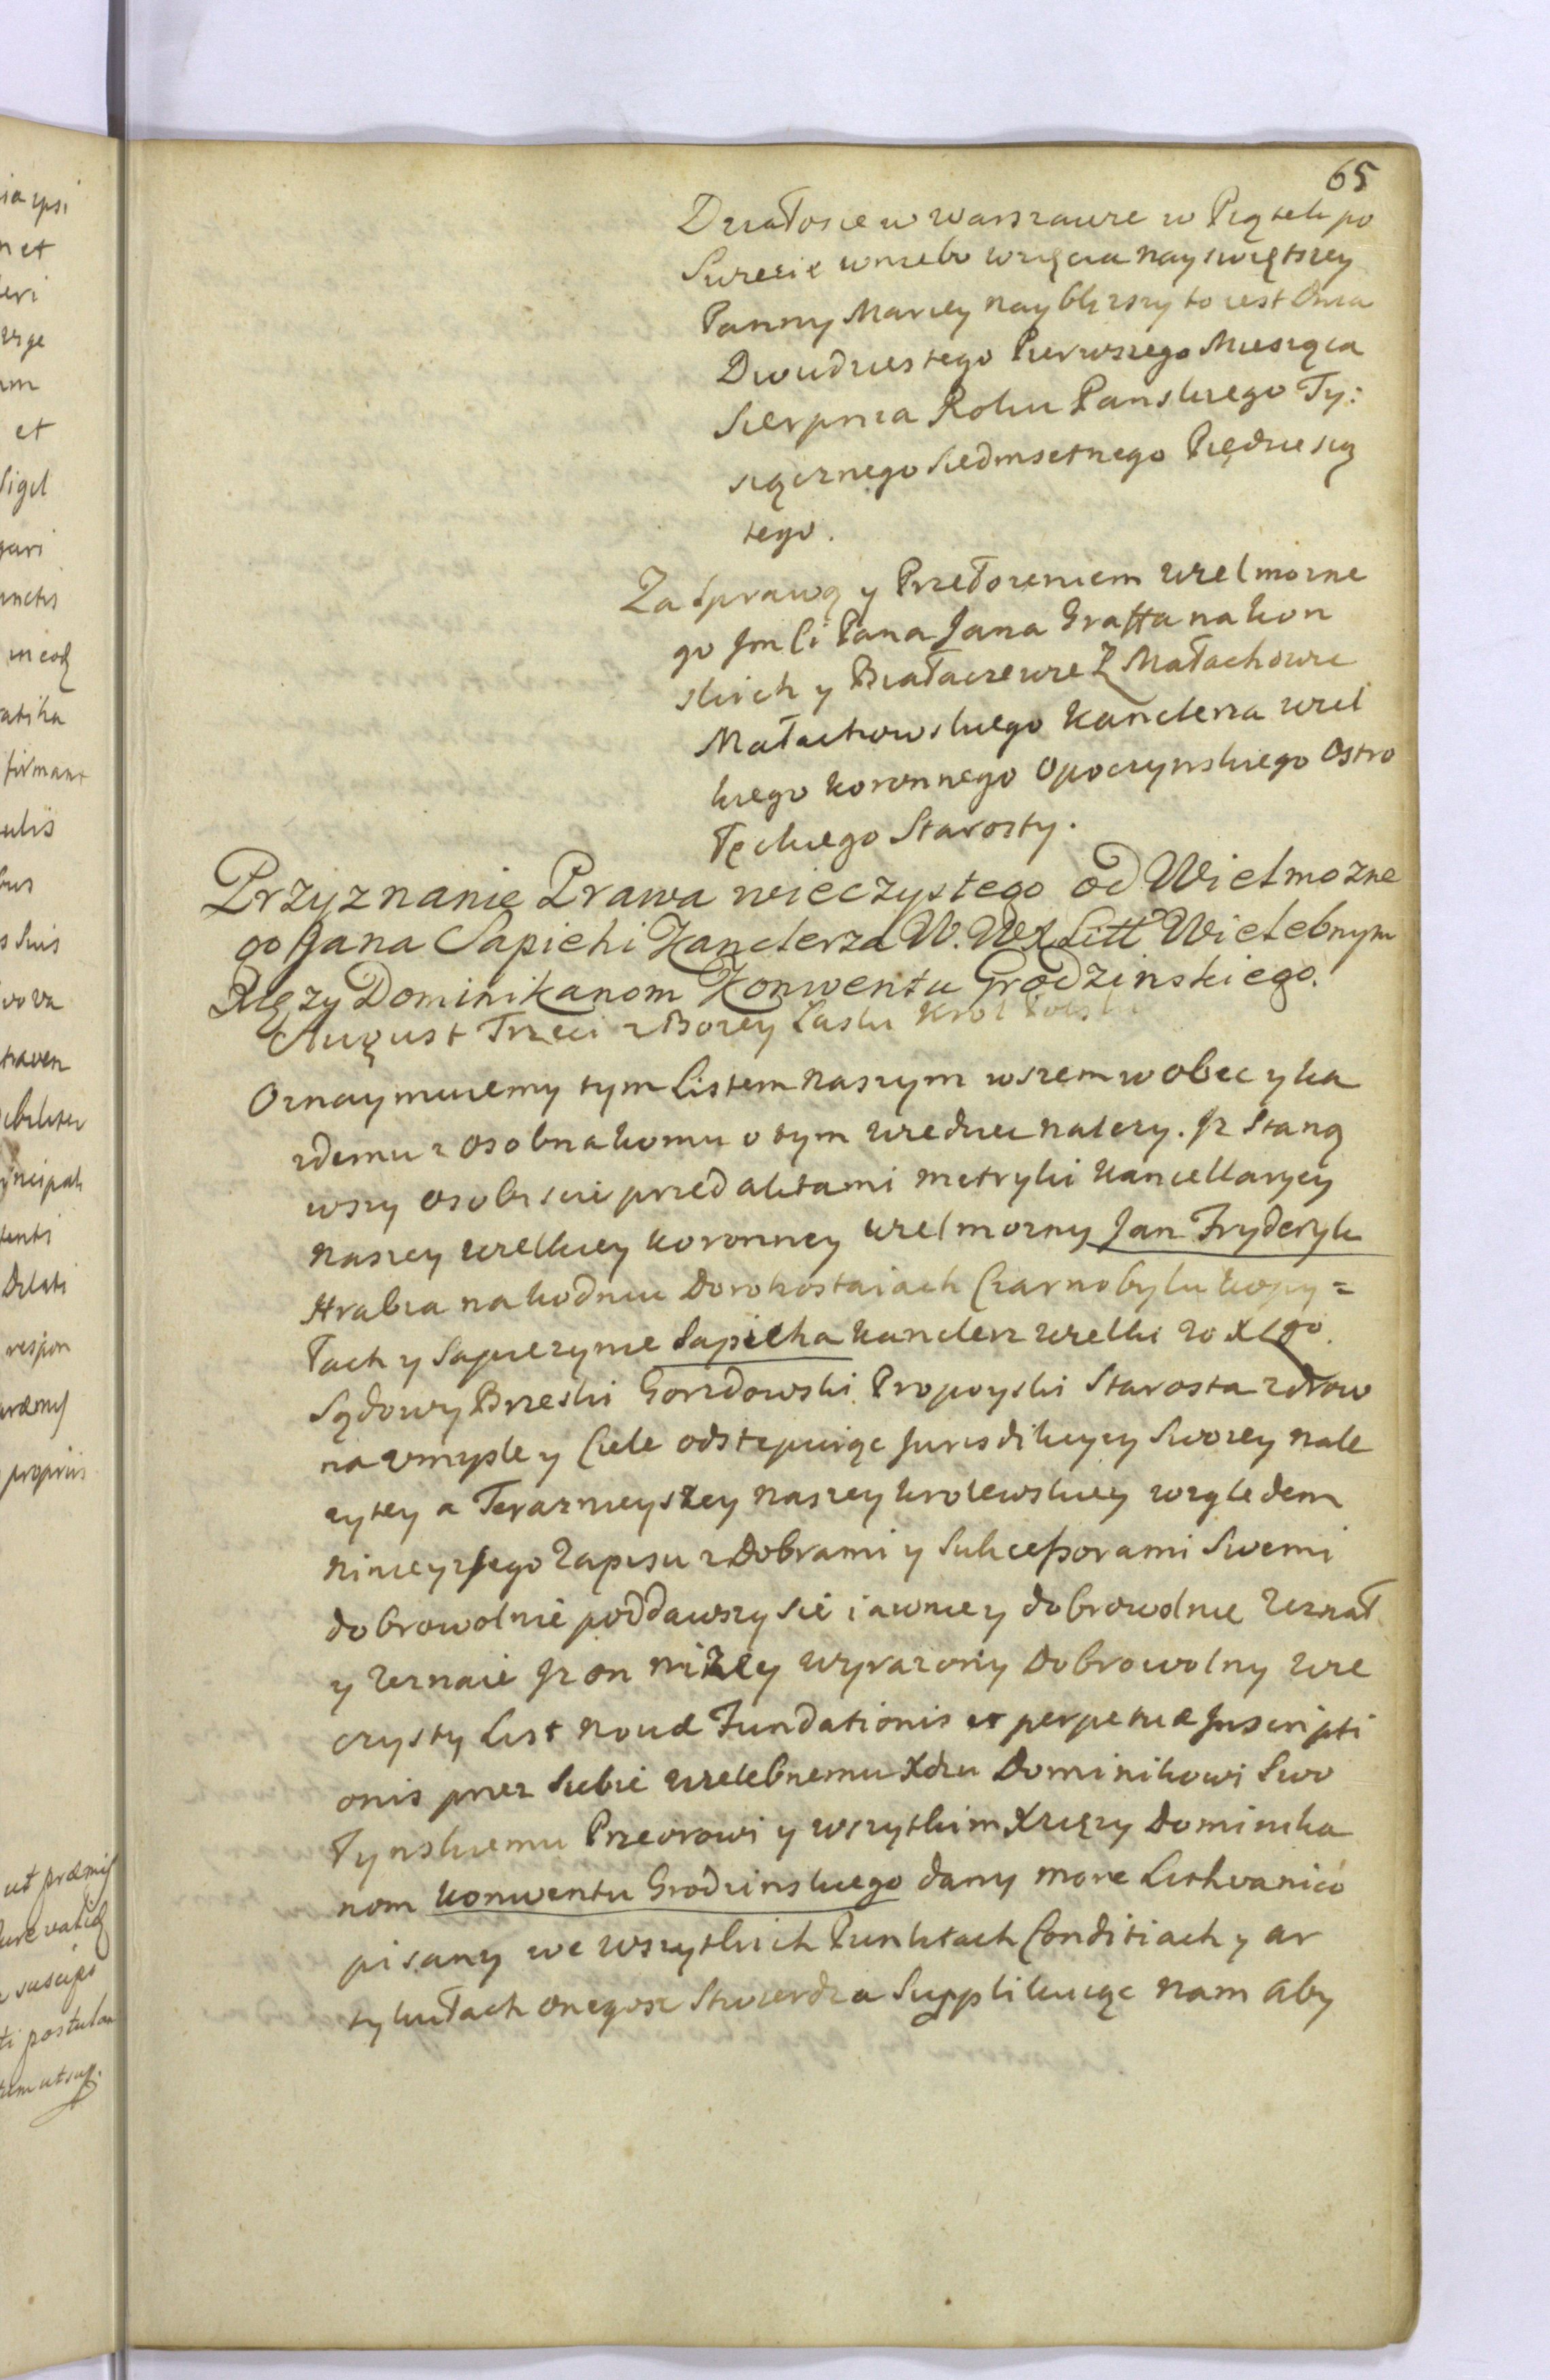 65
Działosie w Warszawie w Piątek po
Swięcie wniebo wzięcia nayswiętszey
Panny Maryey naybliższy to iest Dnia
Dwudziestego Pierwszego Miesiąca
Sierpnia Roku Panskiego Ty:
siącznego Siedmsetnego Piędziesią
tego.
Za Sprawą y Przełożeniem Wielmożne
go Jm Ci Pana Jana Graffa na Kon
skich y Białaczewie Z Małachowic
Małachowskiego Kanclerza Wiel
kiego Koronnego Opoczynskiego Ostro
łęckiego Starosty.
Przyznanie Prawa wieczystego od Wielmożne
go Jana Sapiehi Kanclerza W. WX Litt Wielebnym
Xięzy Dominikanom Konwentu Grodzinskiego.
August Trzeci z Bożey Łaski Krol Polski
Oznaymuiemy tym Listem naszym wszem wobec y ka
żdemu z osobna komu o tym wiedziec należy. Iż Staną
wszy osobiscie przed Aktami Metryki Kancellaryey
naszey Wielkiey Koronney Wielmożny Jan Fryderyk
Hrabia na Kodniu Dorohostaiach Czarnobylu Kopy=
łach y Sapieżynie Sapieha Kanclerz Wielki W X Lgo.
Sądowy Brzeski Gorzdowski Propoyski Starosta zdrow
na Umysle y Ciele odstępuiąc Jurisdikcyey Swoiey nale
żytey a Teraznieyszey naszey Krolewskiey względem
ninieyszego Zapisu z Dobrami y Sukcessorami Swemi
dobrowolnie poddawszy sie iawnie y dobrowolnie Zeznał
y Zeznaie Iż on niżey wyrażony Dobrowolny Wie
czysty List novæ Fundationis et perpetuæ Inscripti
onis przez Siebie Wielebnemu Xdzu Dominikowi Swo
łynskiemu Przeorowi y wszytkim Xięży Dominika
nom Konwentu Grodzinskiego dany more Lithvanico
pisany we wszytkich Punktach Conditiach y ar
tykułach onegosz Stwierdza Supplikuiąc nam aby